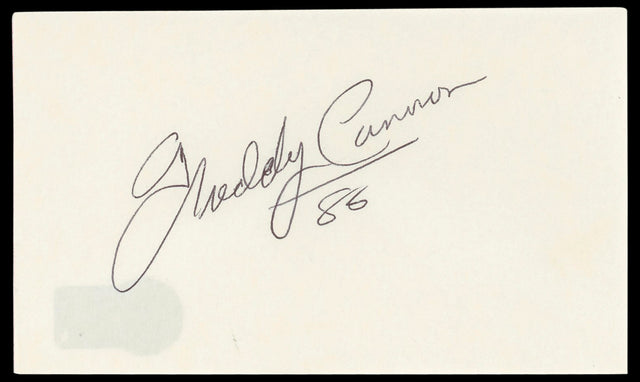 Freddy Cannon
86